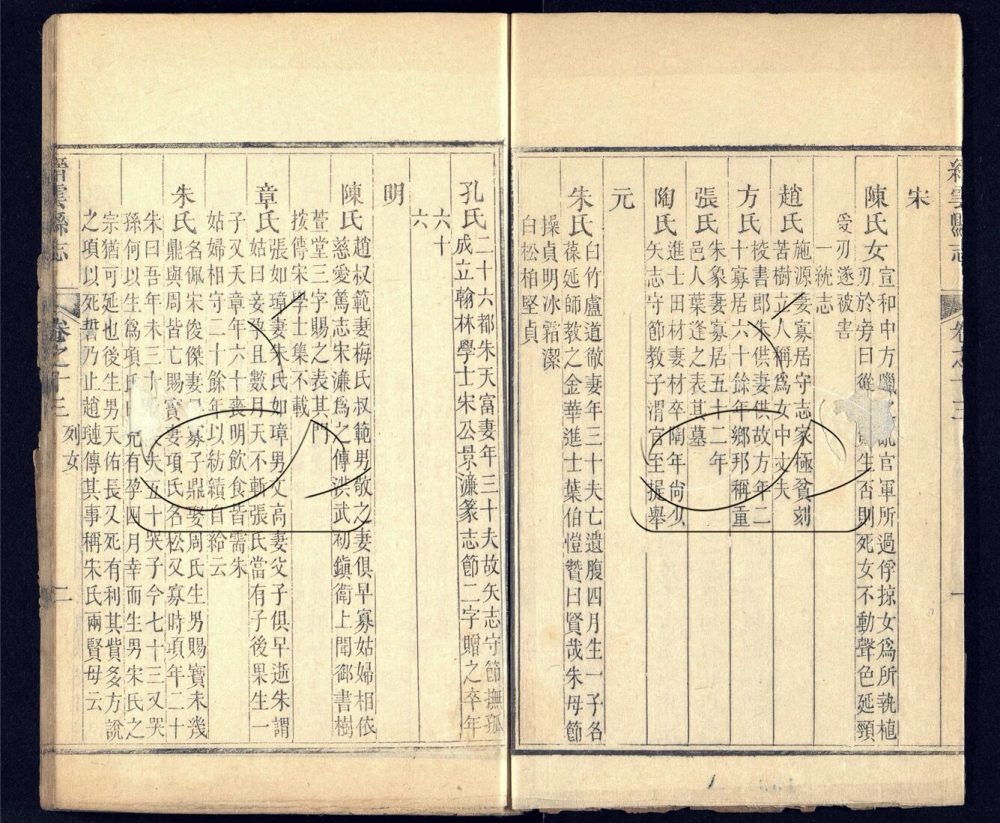 縉雲縣志
卷之十三
一
宋
陳氏女
宣和中方臘亂官軍所過俘掠女爲所執植
刃於旁曰從生否則死女不動聲色延頸
愛刃遂被害
一統志
趙氏
施源妻寡居守志家極貧刻
苦樹立人稱爲女中丈夫
方氏
校書郎朱供妻供故方年二
十寡居六十餘年鄉邦稱重
張氏
朱象妻寡居五十二年
邑人葉逢之表其墓
陶氏
進士田材妻材卒陶年尚少
矢志守節教子渭官至提舉
元
朱氏
臼竹盧道徹妻年三十夫亡遺腹四月生一子名
葆延師教之金華進士葉伯愷贊曰賢哉朱母節
操貞明冰霜潔
白松柏堅貞
孔氏
二十六都朱天富妻年三十夫故矢志守節撫孤
成立翰林學士宋公景濂篆志節二字贈之卒年
六十
六
明
陳氏
趙叔範妻梅氏叔範男敬之妻俱早寡姑婦相依
慈愛篤志宋濂爲之傳洪武初鎭衛上聞御書樹
萱堂三字賜之表其門
按傳宋學士集不載
章氏
張如璋妻朱氏如璋男文高妻父子俱早逝朱謂
姑曰妾孕且數月天不斬張氏當有子後果生一
子又夭章年六十喪明飲食皆需朱
姑婦相守二十餘年以紡績自給云
朱氏
名佩宋俊傑妻寡子鼎娶周氏生男賜寶未幾
鼎與周皆亡賜寶妻項氏名松又寡時項年二十
朱曰吾年未三十夫五十哭子今七十三又哭
孫何以生爲項氏兄有孕四月幸而生男宋氏之
宗猶可延也後生男天佑長又死有利其貲多方說
之項以死誓乃止趙璉傳其事稱朱氏兩賢母云
縉雲縣志
卷之十三
列女
二